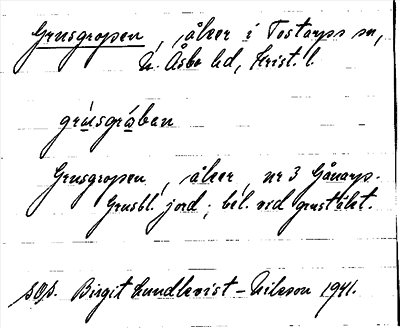 Grusgropen, åker i Tostarps sn,
N. Åsbo hd, Krist. l.
grúsgråban
Grusgropen, åker, nr 3 Gånarp.
Grusbl. jord; bel. vid grustäkt.
SOS. Birgit Lundkvist-Nilsson 1941.